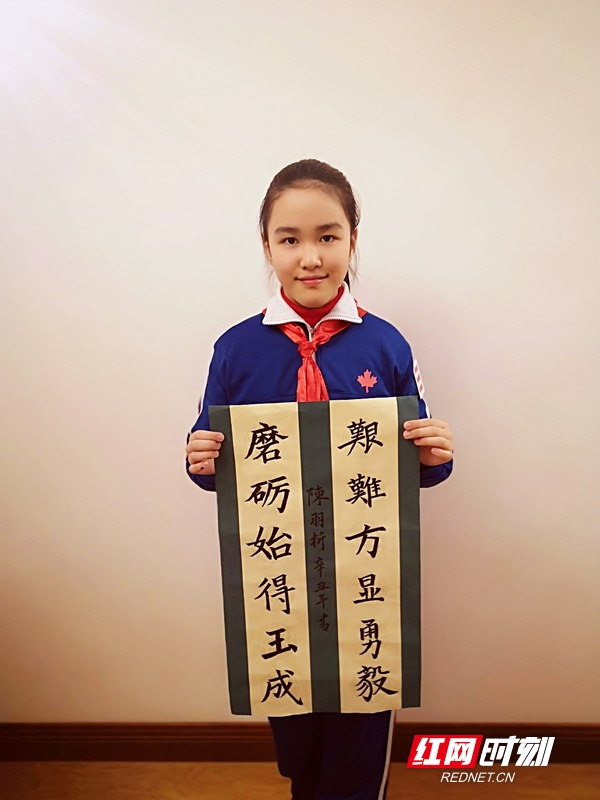 艱難方显勇毅
磨砺始得玉成
陳羽析辛丑年书
红网时刻
REDNET.CN